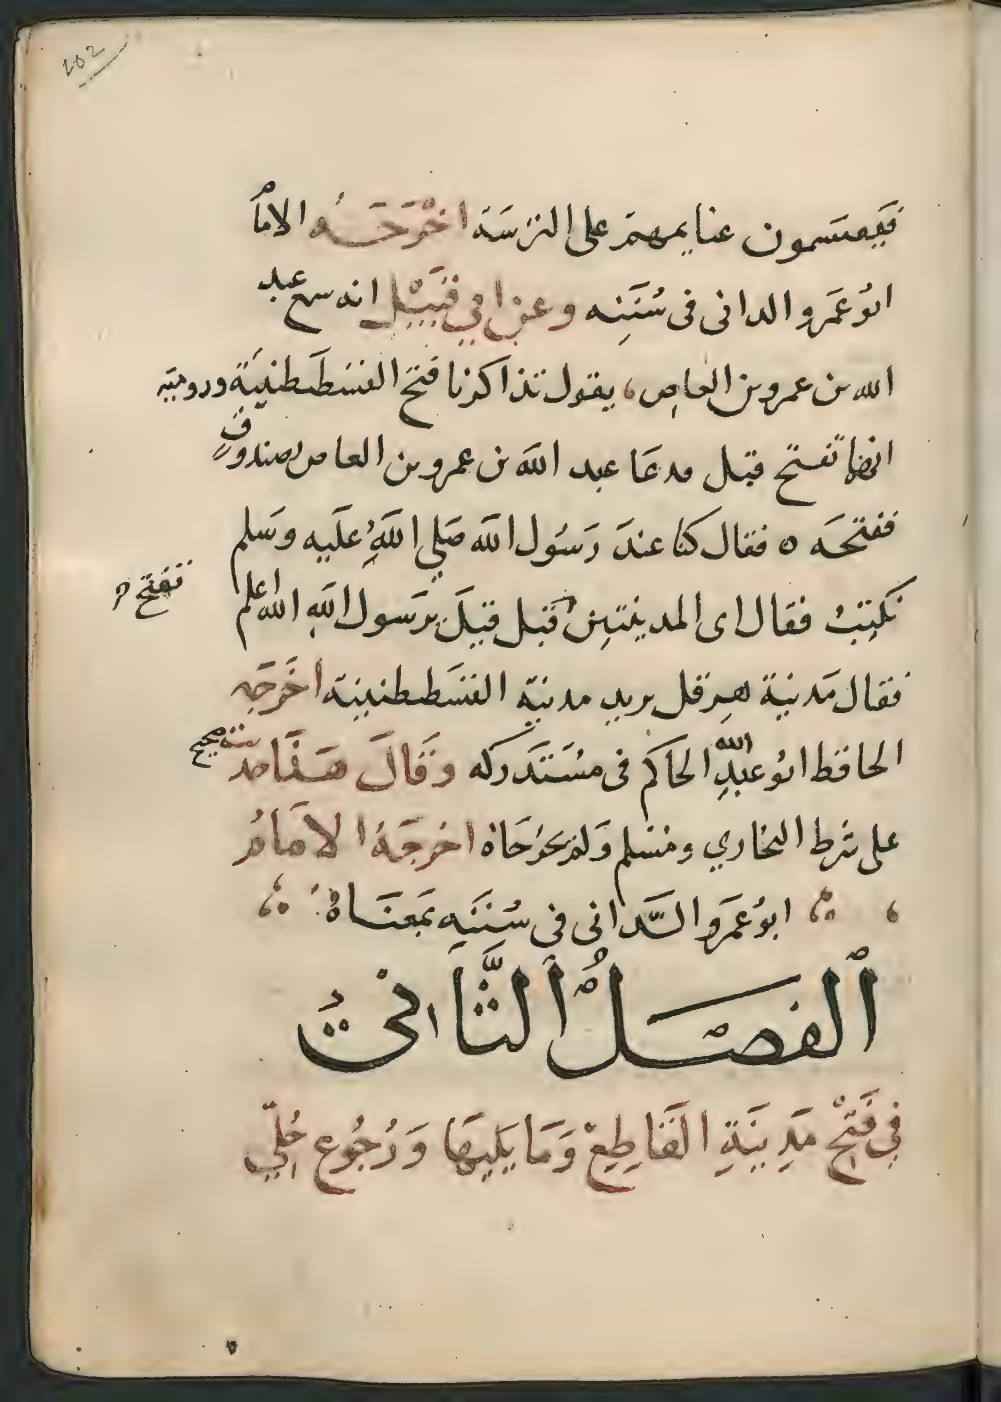 202
فيقتسمون غنايمهم على الترسة اخرجه الامام
ابو عمرو الدانى فى سننه وعن ابي قبيل انه سمع عبد
الله بن عمرو بن العاص، يقول تذاكرنا فتح القسطنطينية ورومية
ايها تفتح قبل فدعا عبد الله بن عمرو بن العاص بصندوق
ففتحه ٥ فقال كنا عند رسول الله صلي الله عليه وسلم
نكتب فقال اى المدينتين قبل قيل يرسول الله الله اعلم
تفتح
فقال مدينة هرقل يريد مدينة القسطنطينية اخرجه
الحافظ ابو عبد الله الحاكم فى مستدركه وقال هذا حديث صحيح
على شرط البخاري ومسلم ولم يخرجاه اخرجه الامام
ابو عمرو الدانى فى سننه بمعناه
الفصل الثانى
في فتح مدينة القاطع وما يليها ورجوع حلي